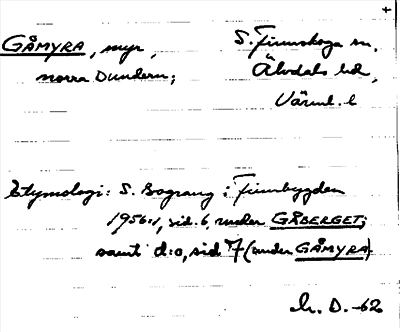 GÅMYRA, myr, S. Finnskoga sn,
norra Dundern; Älvdals hd,
Värml. l
Etymologi: S. Bograng i Finnbygden
1956:1, sid. 6, under GÅBERGET;
samt d:o, sid 7 (under GÅMYRA)
D. -62